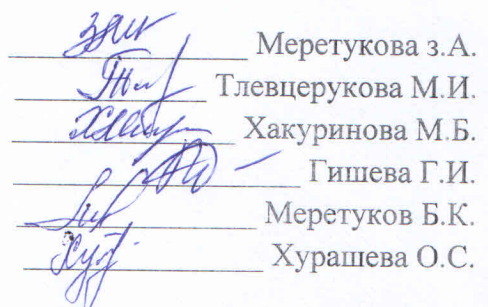 Меретукова з.А.
Тлевцерукова М.И.
Хакуринова М.Б.
Гишева Г.И.
Меретуков Б.К.
Хурашева О.С.